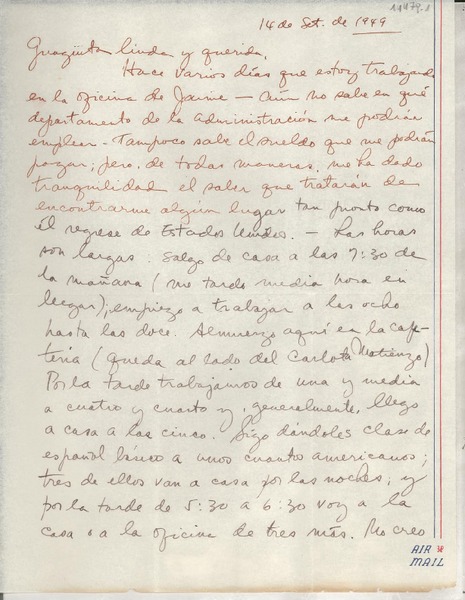 14479.1
14 de Set. de 1949
Guagüita linda y querida,
Hace varios días que estoy trabajando
en la oficina de Jaime — Aún no sabe en qué
departamento de la administración me podrán
emplear - Tampoco sabe el sueldo que me podrán
pagar; pero, de todas maneras, me ha dado
tranquilidad el saber que tratarán de
encontrarme algún lugar tan pronto como
él regrese de Estados Unidos. — Las horas
son largas: Salgo de casa a las 7:30 de
la mañana (me tardo media hora en
llegar); empiezo a trabajar a las ocho
hasta las doce. Almuerzo aquí en la cafe-
tería (queda al lado del Carlota Matienzo)
Por la tarde trabajamos de una y media
a cuatro y cuarto y, generalmente, llego
a casa a las cinco. Sigo dándoles clase de
español básico a unos cuanto americanos;
tres de ellos van a casa por las noches, y
por la tarde de 5:30 a 6:30 voy a la
casa o a la oficina de tres más. No creo
AIR
MAIL